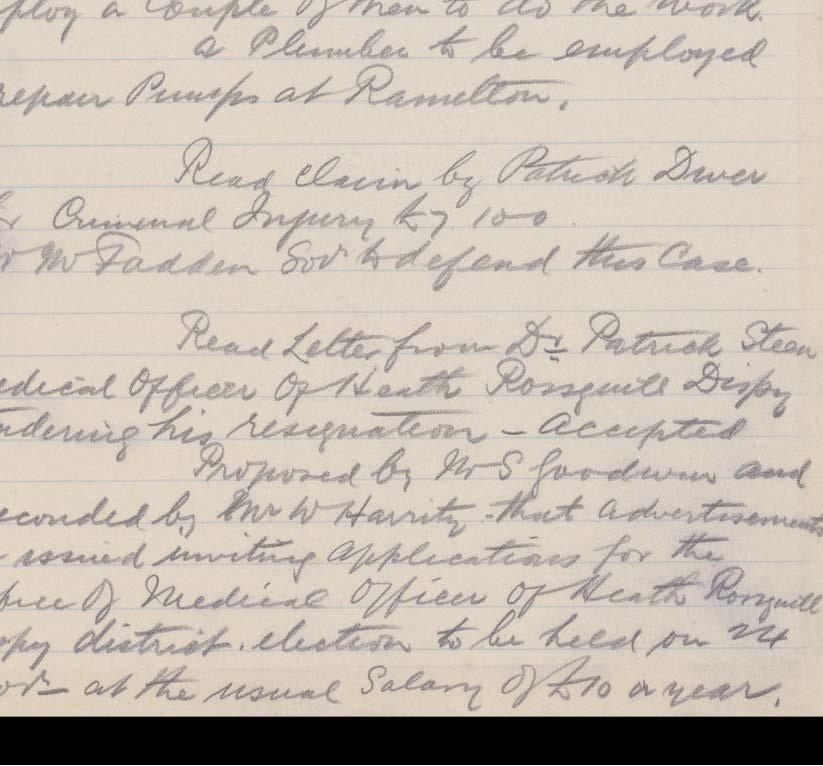 ploy a Couple of men to do the work.
a Plumber to be employed
repair Pumps at Ramelton.
Read Claim by Patrick Diver
Criminal Injury £7. 10-0
Mr McFadden Solr to defend this Case.
Read Letter from Dr Patrick Steen
edical Officer Of Heath Rossguill Dispy
ndering his resignation - Accepted
Proposed by Mr S Goodwin and
econded by Mr W Harrity that Advertisements
issued inviting Applications for the
ffice Of Medical Officer Of Heath Rossguill
spy district. election to be held on 24
ov - at the usual Salary Of £10 a year.